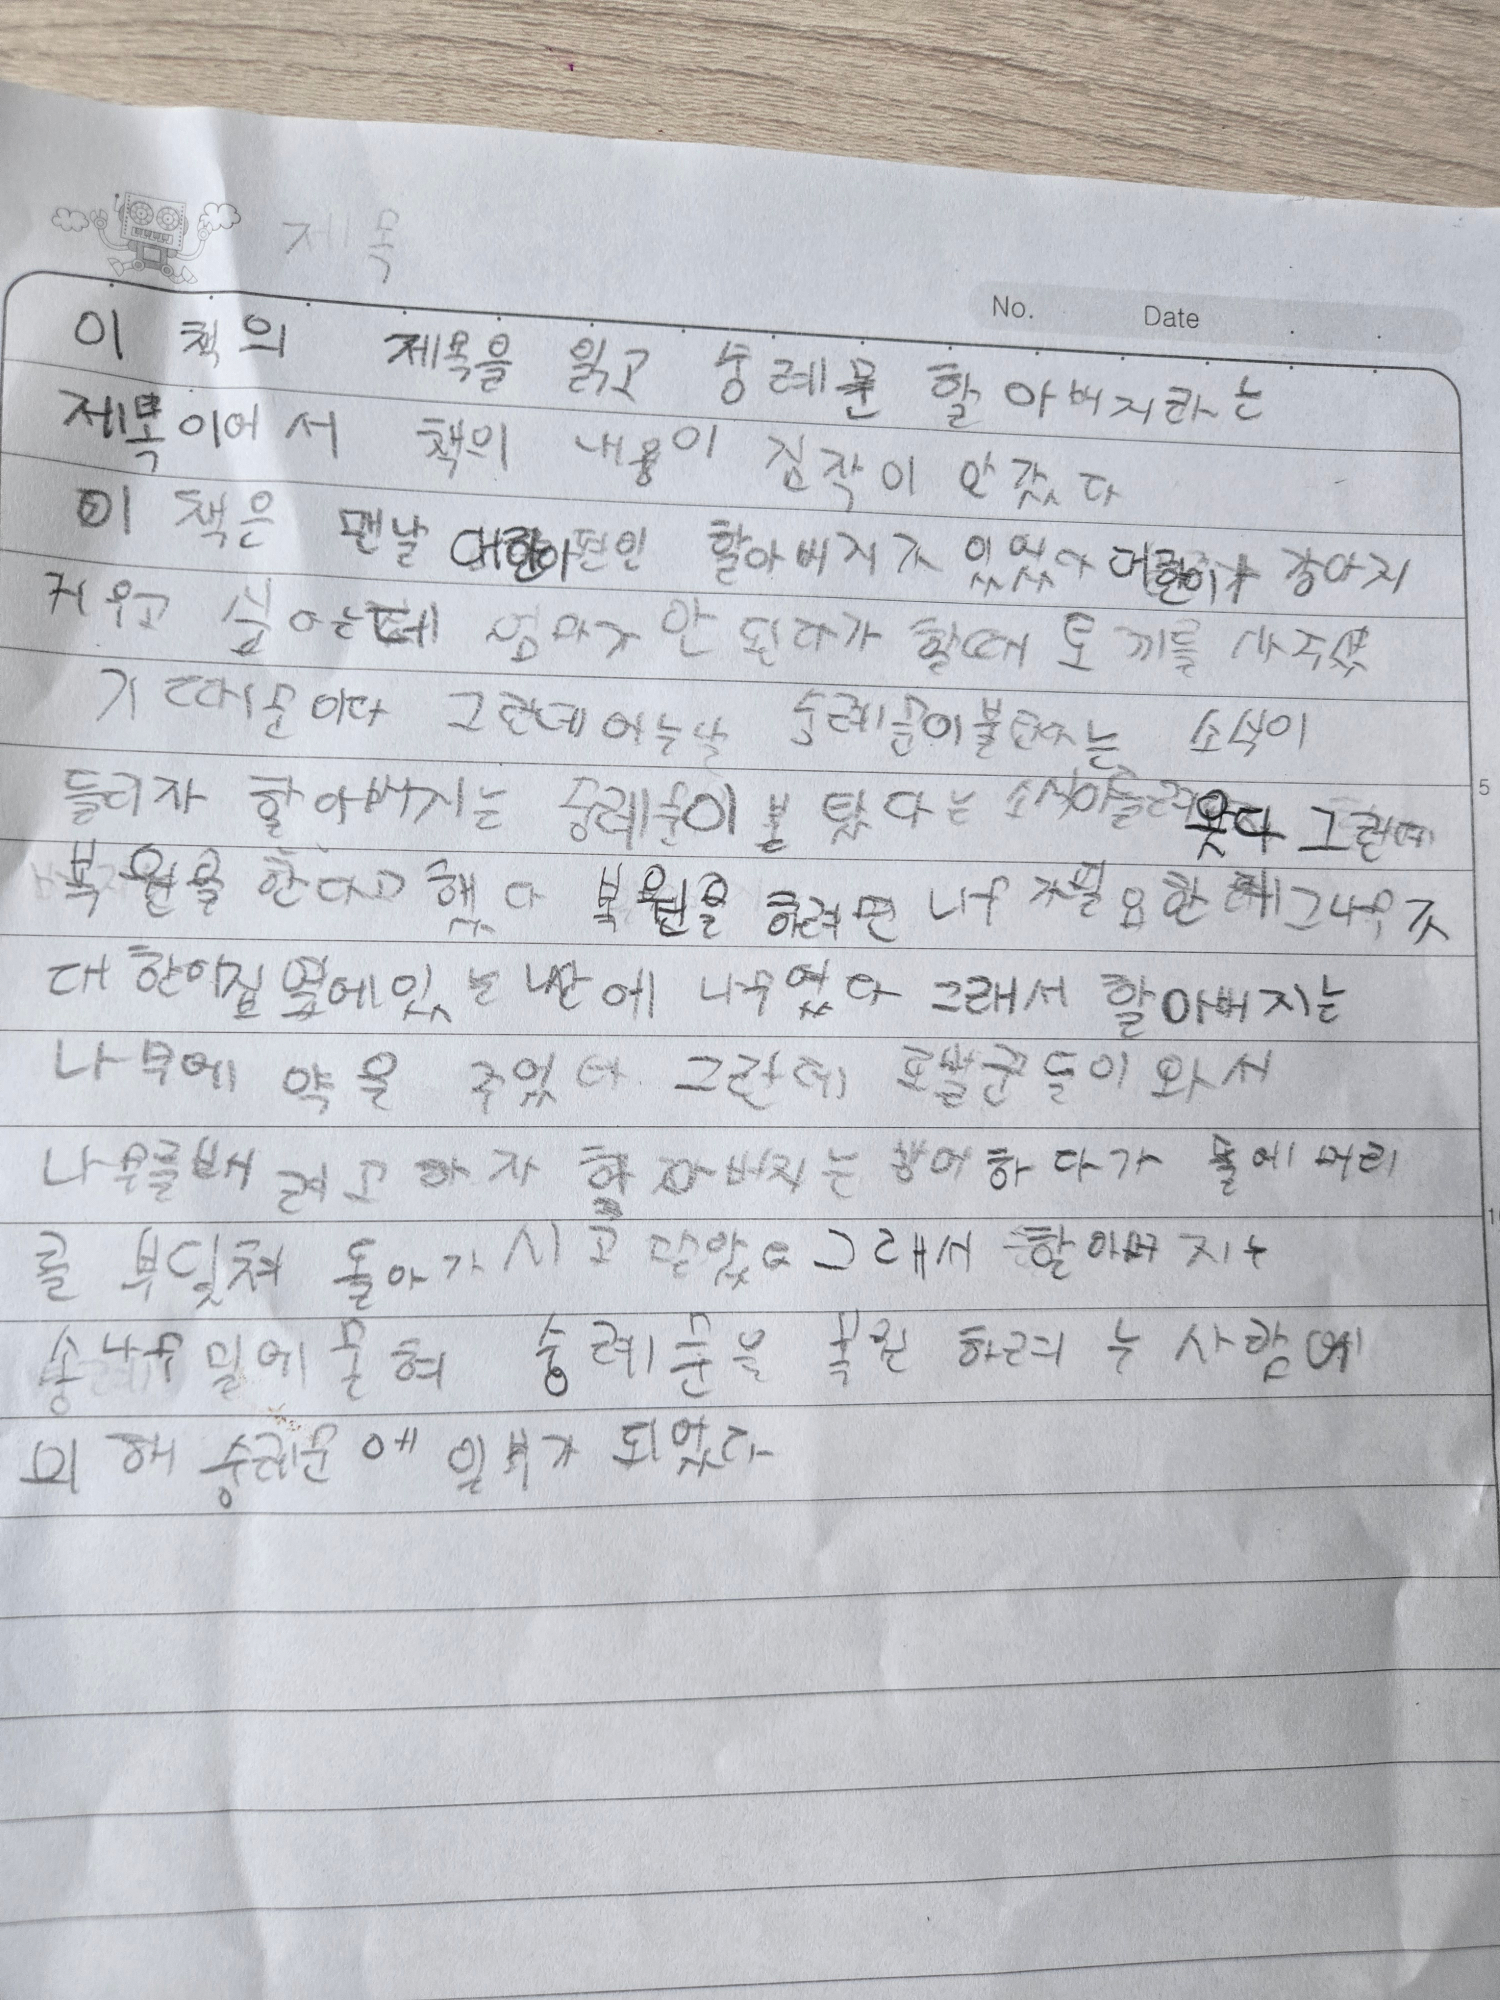 제목
No. Date
이 책의 제목을 읽고 숭례문 할아버지라는
제목이어서 책의 내용이 짐작이 안갔다
이 책은 맨날 대한이편인 할아버지가 있있다 대한이가 강아지
키우고 싶어는데 엄마가 안 된다가 할때 토끼를 사주셨
기 때문이다 그런데 어누날 숭례문이불탄다는 소식이
들리자 할아버지는 숭례문이 불 탔다는 소식이들려 웃다 그런데
복원을 한다고 했다 복원을 하려면 나무가필요한데 그나무가
대한이집 옆에있는 산에 나무였다 그래서 할아버지는
나무에 약을 주었다 그런데 도발꾼들이 와서
나무를베려고 하자 할아버지는 방어하다가 돌에 머리
를 부딪쳐 돌아가시고 말았다 그래서 할아버지는
송나무 밑에 묻혀 숭례문을 복원 하려는 사람에
의해 숭례문에 일부가 되었다
5